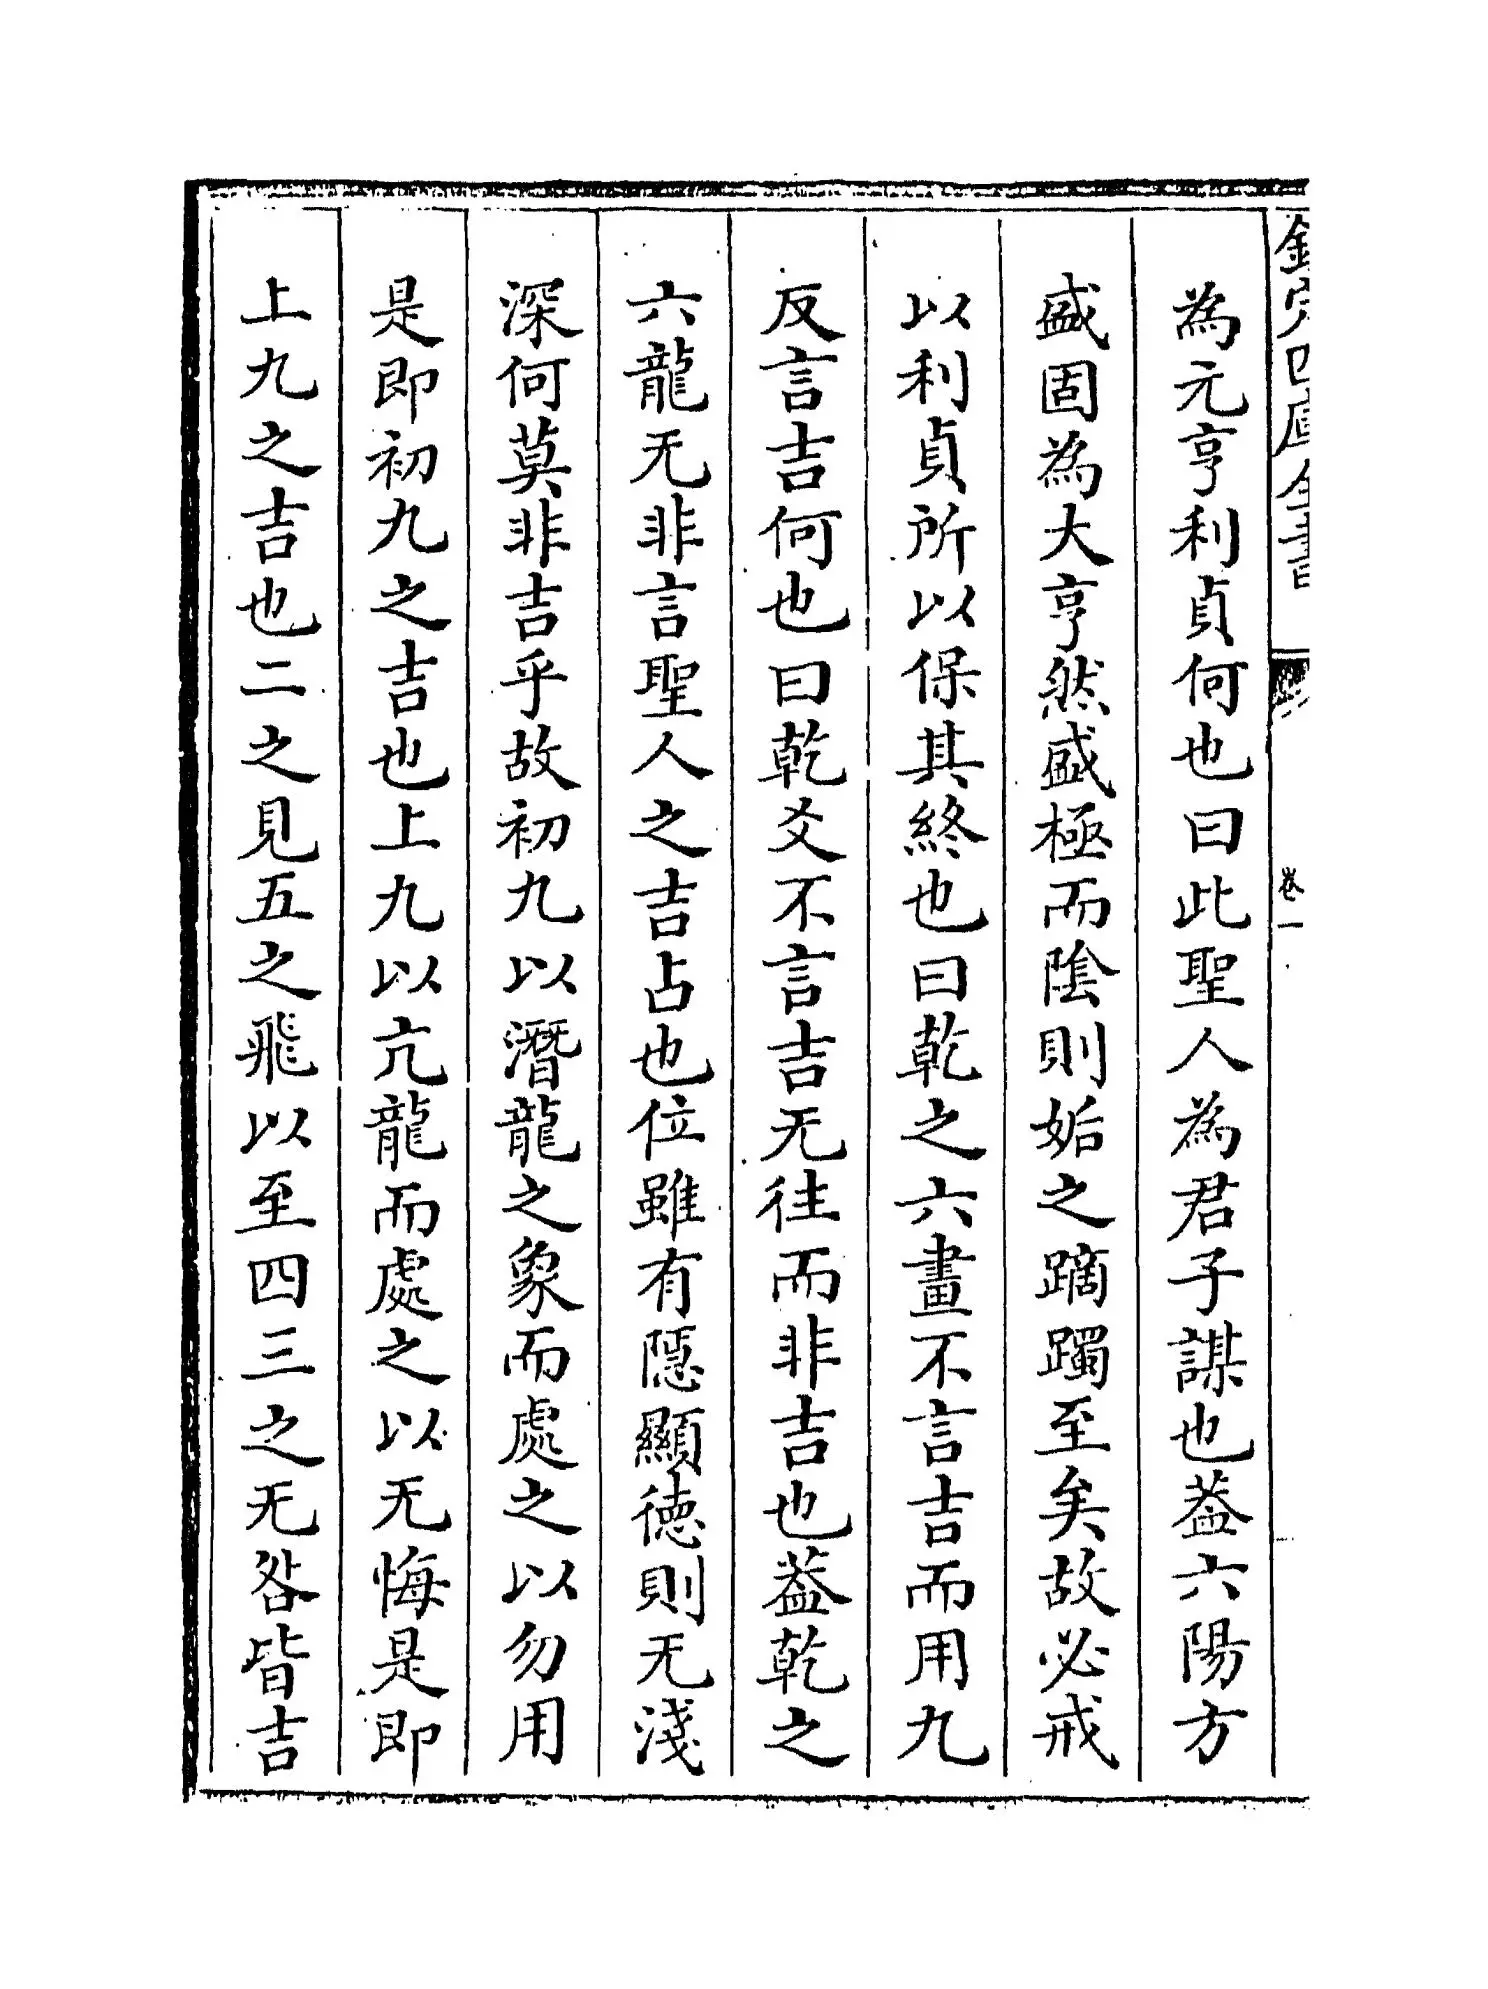 欽定四庫全書
卷一
為元亨利貞何也曰此聖人為君子謀也葢六陽方
盛固為大亨然盛極而陰則姤之蹢躅至矣故必戒
以利貞所以保其終也曰乾之六畫不言吉而用九
反言吉何也曰乾爻不言吉无往而非吉也葢乾之
六龍无非言聖人之吉占也位雖有隱顯徳則无淺
深何莫非吉乎故初九以潛龍之象而處之以勿用
是即初九之吉也上九以亢龍而處之以无悔是即
上九之吉也二之見五之飛以至四三之无咎皆吉